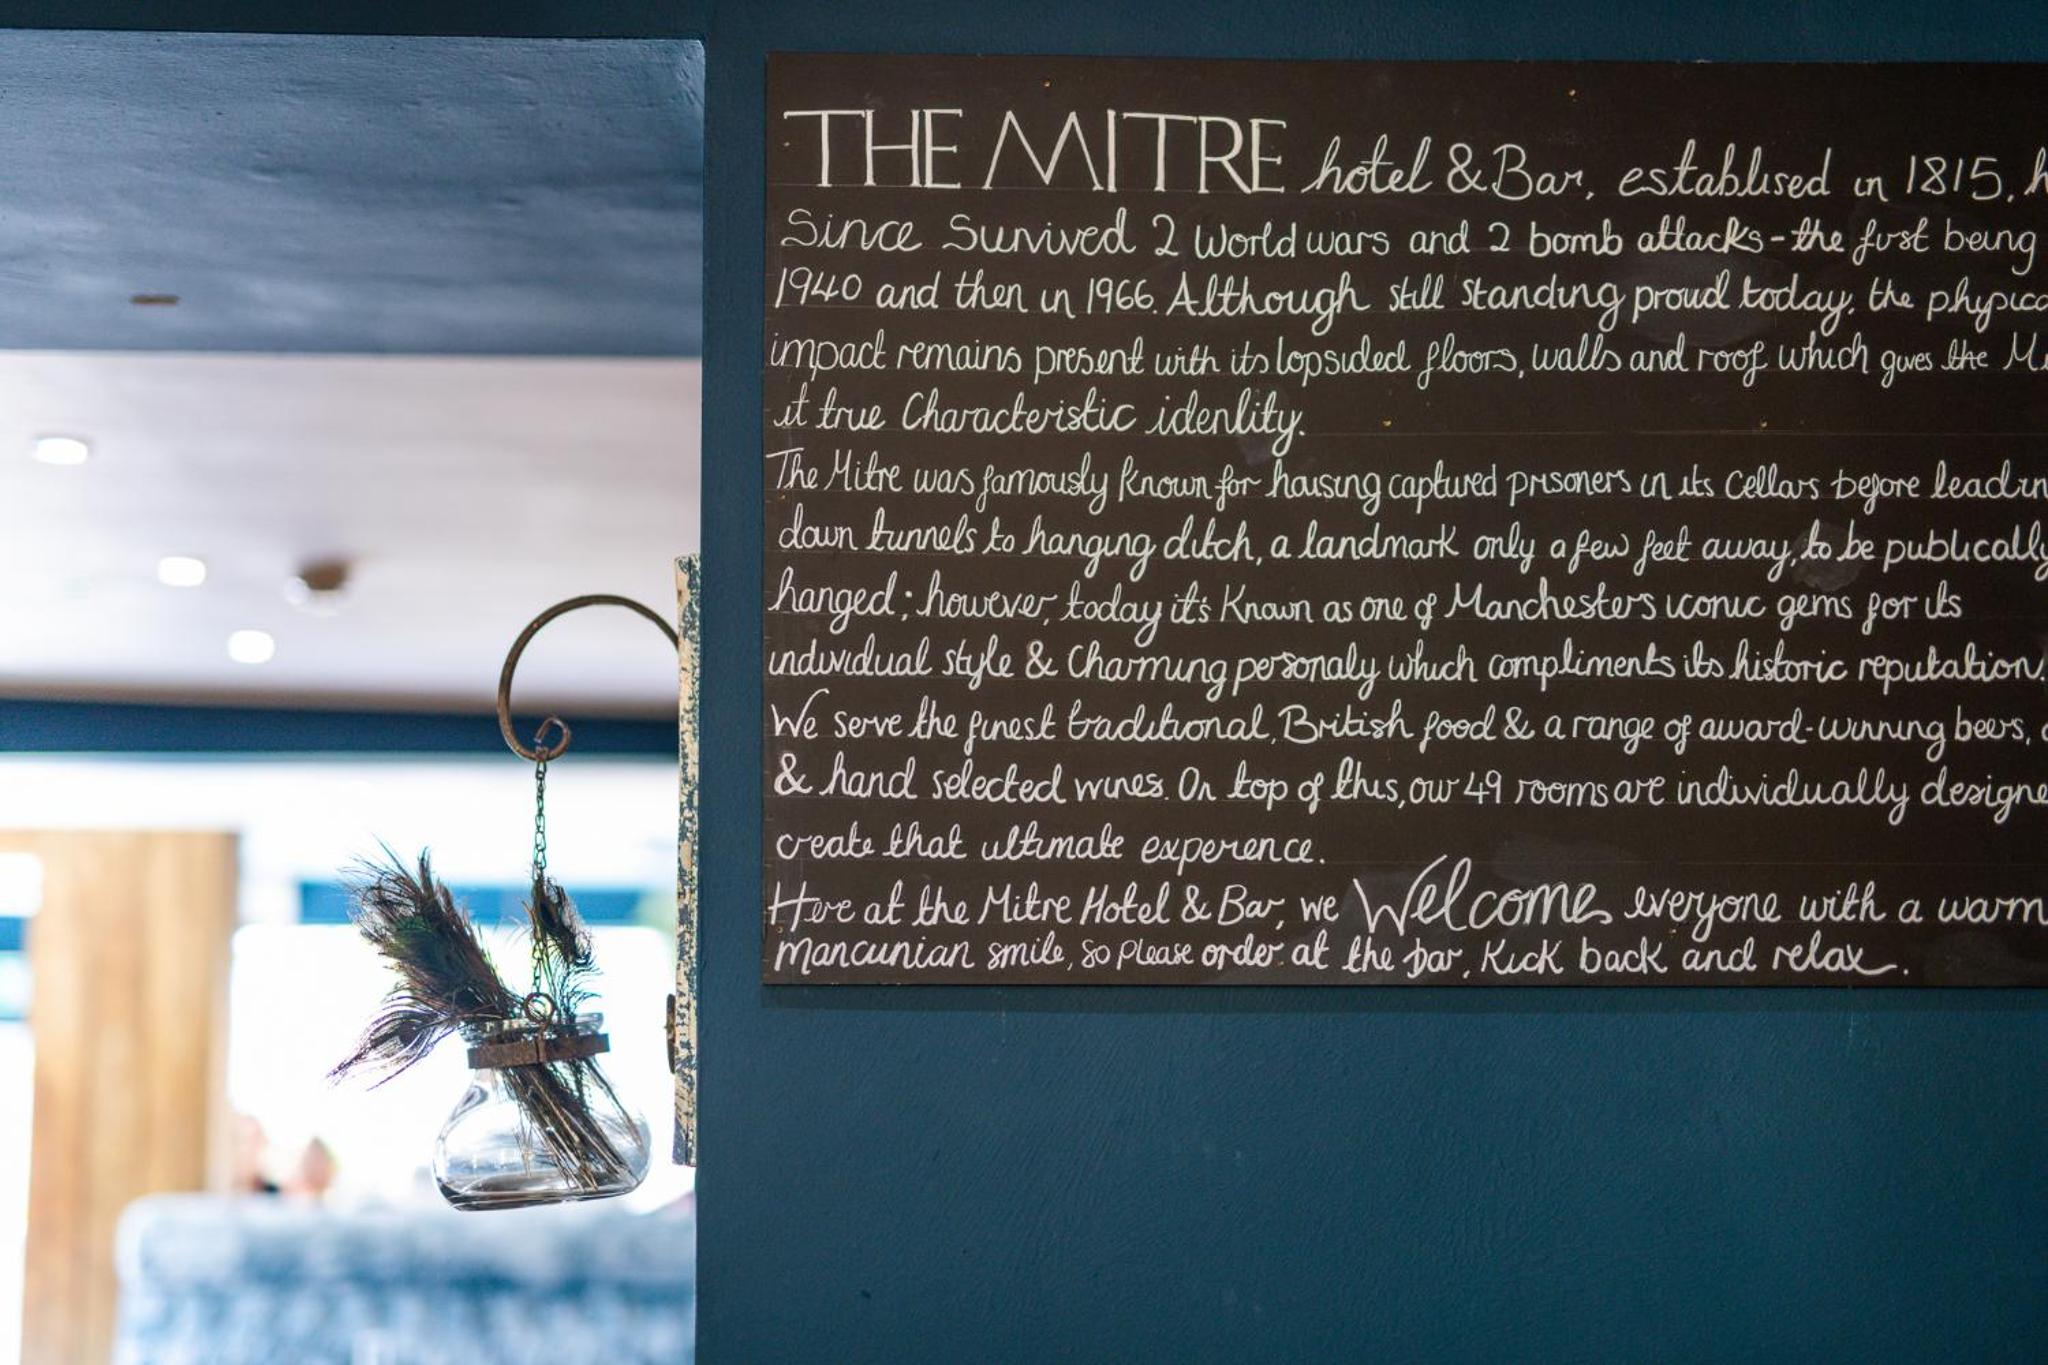 THE MITRE hotel & Bar, established in 1815,
Since Survived 2 World wars and 2 bomb attacks - the first being
1940 and then in 1966. Although still standing proud today, the
impact remains present with its lopsided floors, walls and roof which gives the
it true Characteristic identity.
The Mitre was famously Known for housing captured prisoners in its Cellars before
down tunnels to hanging ditch, a landmark only a few feet away, to be publically
hanged; however, today it's Known as one of Manchesters iconic gems for its
individual style & Charming personaly which compliments its historic reputation.
We serve the finest traditional, British food & a range of award-winning beers,
& hand selected wines. On top of this, our 49 rooms are individually
create that ultimate experence.
Here at the Mitre Hotel & Bar, we Welcome everyone with a warm
mancunian smile, so please order at the bar, Kick back and relax.